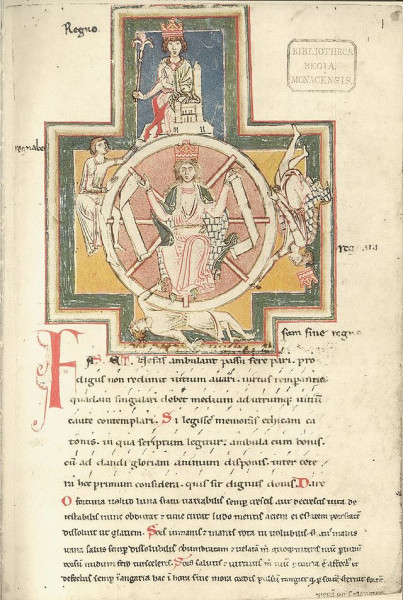 Regno.
BIBLIOTHECA
REGIA
MONACENSIS.
regnabo
regnaui
sum sine regno
FAS ET Nefas ambulant passu fere pari. pro
digus non redimit vitium auari. virtus temperantia
quadam singulari debet medium ad utrumque uitium
caute contemplari. Si legisse memoras ethicam ca
tonis. in qua scriptum legitur. ambula cum bonis.
cum ad dandi gloriam animum disponis. inter cete
ra hoc primum considera. quis sit dignus donis. Dare
O fortuna uelut luna statu uariabilis semper crescis aut decrescis uita de
testabilis nunc obdurat et tunc curat ludo mentis aciem egestatem potestatem
dissoluit ut glaciem. Sors inmanis et inanis rota tu uolubilis status malus
uana salus semper dissolubilis obumbratam et uelatam m quoque niteris nunc
nudum fero tui sceleris. Sors salutis et uirtutis m nunc affectus et
defectus semper in angaria hac in hora sine mora corde pulsum tangite